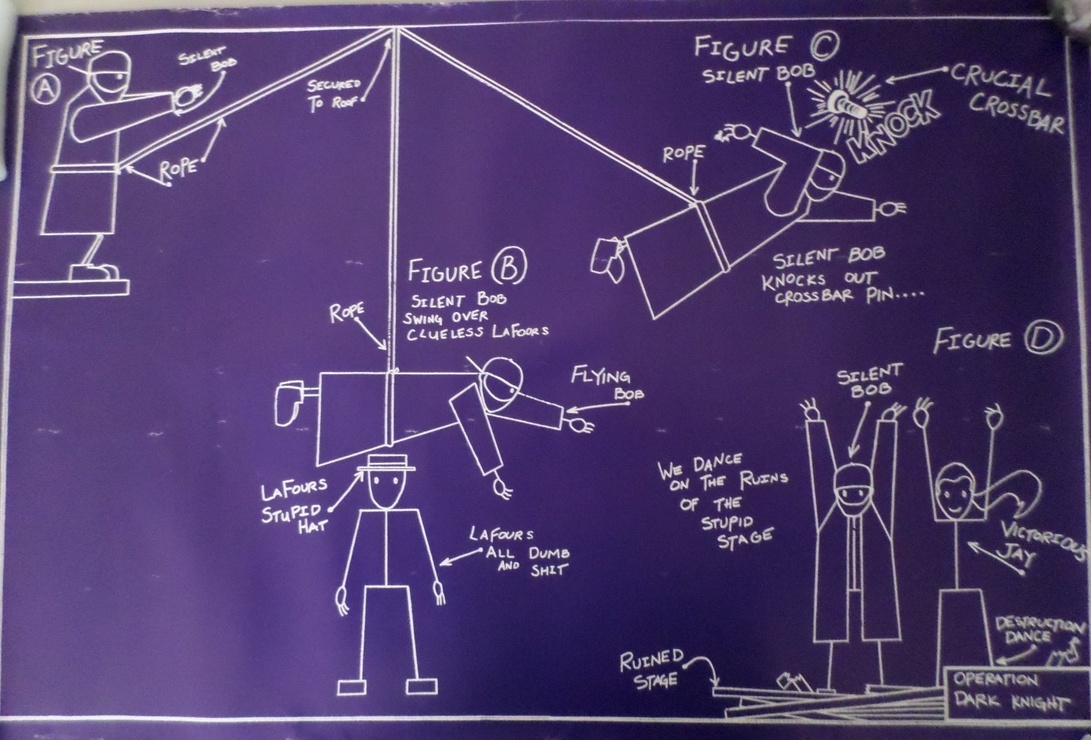 FIGURE
A
SILENT
BOB
ROPE
SECURED
TO ROOF
FIGURE B
SILENT BOB
SWING OVER
CLUELESS LAFOORS
ROPE
FLYING
BOB
LAFOURS
STUPID
HAT
LAFOURS
ALL DUMB
AND SHIT
FIGURE C
SILENT BOB
CRUCIAL
CROSSBAR
KNOCK
ROPE
SILENT BOB
KNOCKS OUT
CROSSBAR PIN....
FIGURE D
SILENT
BOB
WE DANCE
ON THE RUINS
OF THE
STUPID
STAGE
VICTORIOUS
JAY
DESTRUCTION
DANCE
RUINED
STAGE
OPERATION
DARK KNIGHT